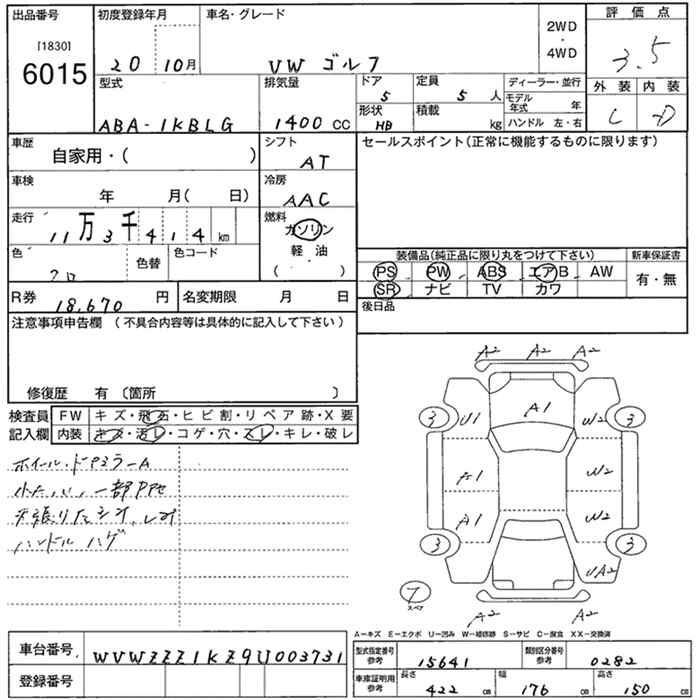 出品番号
[1830]
6015
初度登録年月
20 10月
車名・グレード
VW ゴルフ
2WD
・
4WD
評価点
3.5
外装 内装
C D
型式
ABA-1KBLG
排気量
1400 CC
ドア
5
定員
5 人
形状
HB
積載
kg
ディーラー・並行
モデル年式 年
ハンドル 左・右
車歴
自家用・( )
シフト
AT
セールスポイント(正常に機能するものに限ります)
車検
年 月( 日)
冷房
AAC
走行
11万3千414km
燃料
ガソリン
軽・油
( ・ )
色
クロ
色替
色コード
装備品(純正品に限り丸をつけて下さい)
新車保証書
PS PW ABS エアB AW
SR ナビ TV カワ
有・無
R券
18,670 円
名変期限 月 日
後日品
注意事項申告欄(不具合内容等は具体的に記入して下さい)
修復歴 有〔箇所 〕
検査員記入欄
FW キズ・飛石・ヒビ割・リペア跡・X要
内装 キズ・汚レ・コゲ・穴・スレ・キレ・破レ
ホイール・ドアミラーA
ハンドルハゲ
A2 A2 A2
A1
3 U1 W2 3
A1 W2
A1 W2
3 3
UA2
7
スペア
A2 A2
A-キズ E-エクボ U-凹み W-補修跡 S-サビ C-腐食 XX-交換済
車台番号
WVWZZZ1KZ9U003731
登録番号
型式指定番号
参考
15641
類別区分番号
参考
0282
車庫証明用
参考
長さ
422 cm
幅
176 cm
高さ
150 cm